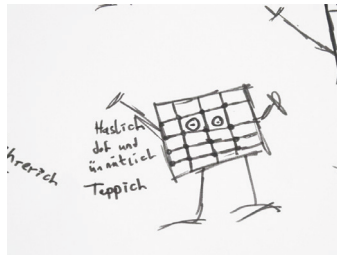 Haslich
dof und
ünnätlich
Teppich
hrerisch